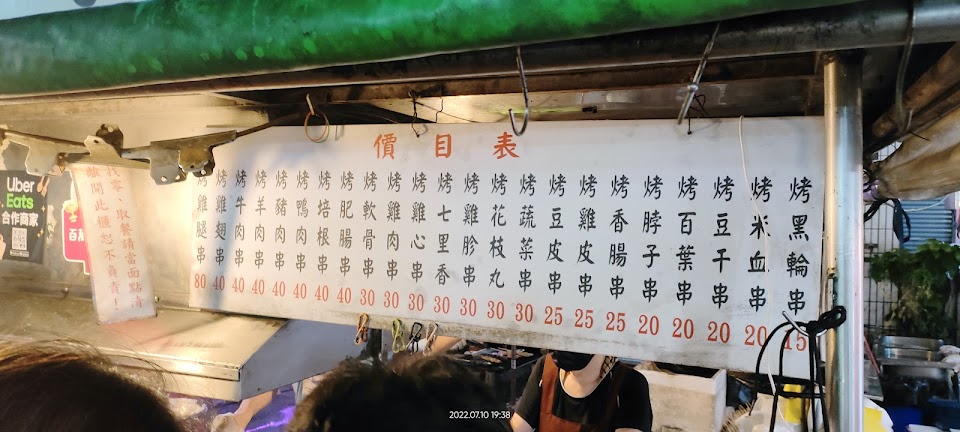 價目表
烤雞腿串 80
烤雞翅串 40
烤牛肉串 40
烤羊肉串 40
烤豬肉串 40
烤鴨肉串 40
烤培根串 40
烤肥腸串 40
烤軟骨串 30
烤雞肉串 30
烤雞心串 30
烤七里香 30
烤雞胗串 30
烤花枝丸 30
烤蔬菜串 30
烤豆皮串 25
烤雞皮串 25
烤香腸串 25
烤脖子串 20
烤百葉串 20
烤豆干串 20
烤米血串 20
烤黑輪串 15
找零、取餐請當面點清
離開此攤恕不負責！
Uber
Eats
合作商家
2022.07.10 19:38